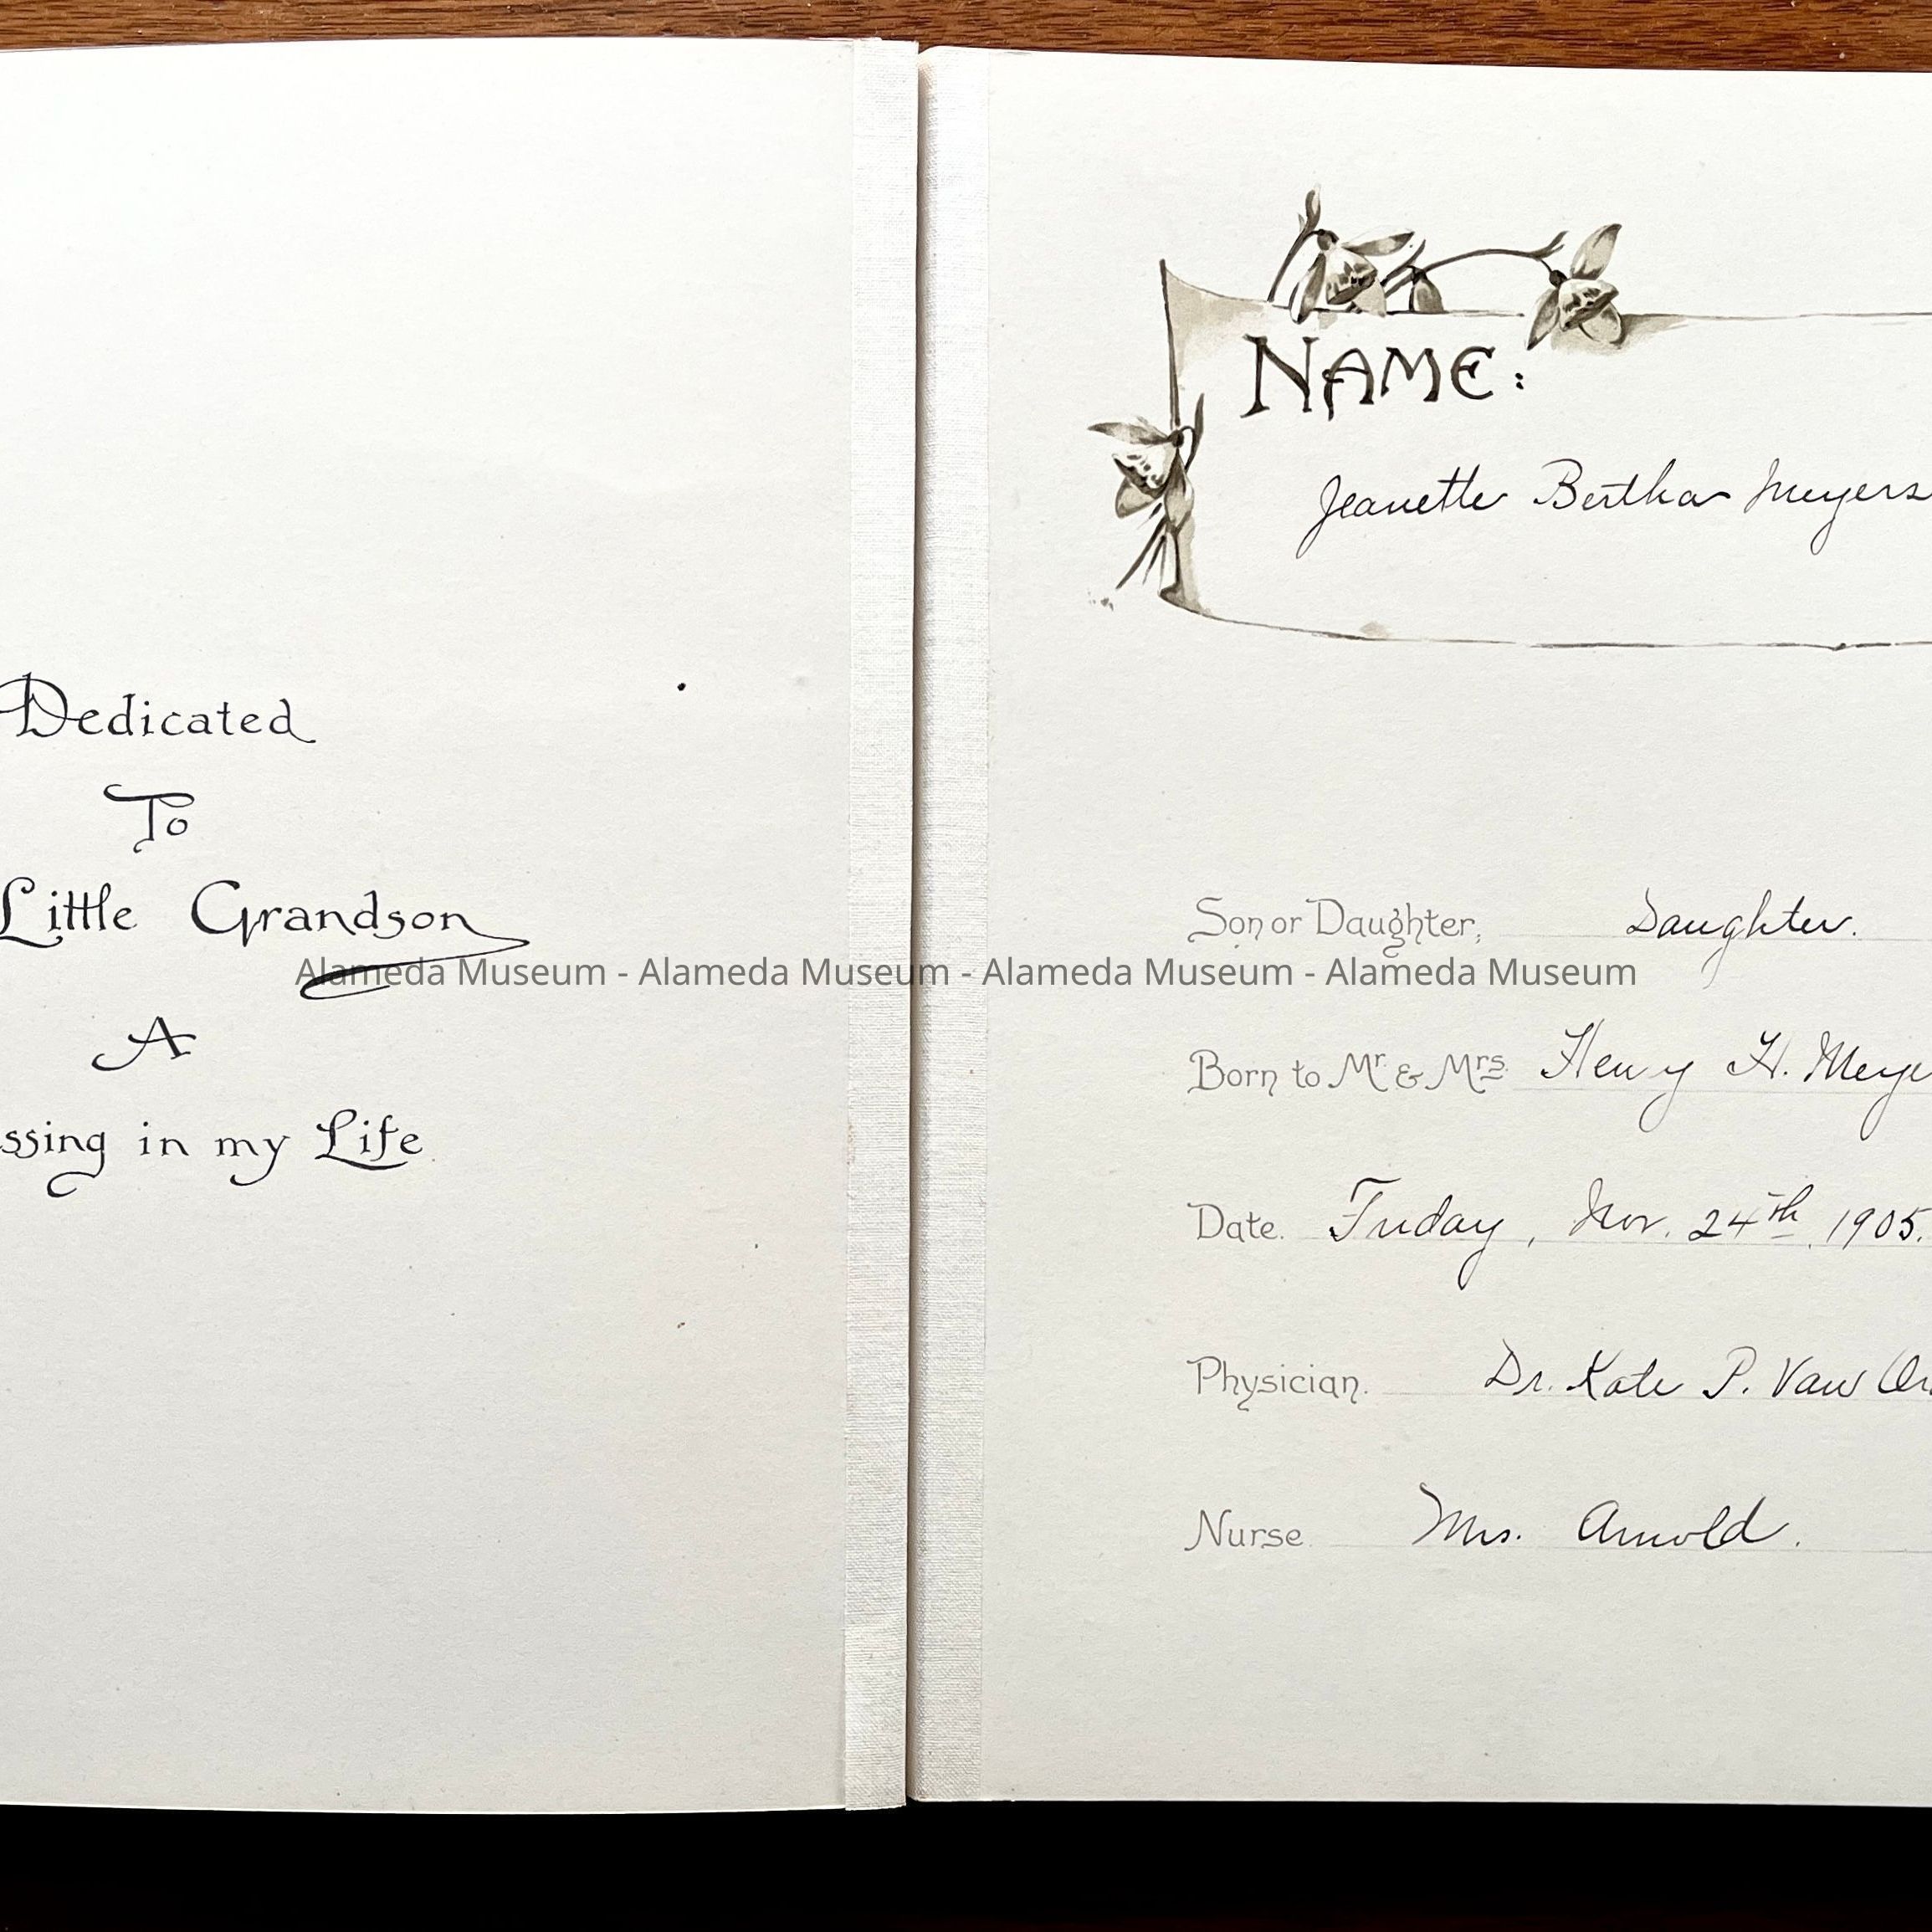 Dedicated
To
Little Grandson
A
ssing in my Life.
NAME:
Jeanette Bertha Meyers
Son or Daughter; Daughter.
Alameda Museum - Alameda Museum - Alameda Museum - Alameda Museum
Born to Mr. & Mrs. Henry H. Meye
Date. Friday, Nov. 24th, 1905.
Physician. Dr. Kate P. Van Or
Nurse Mrs. Arnold.